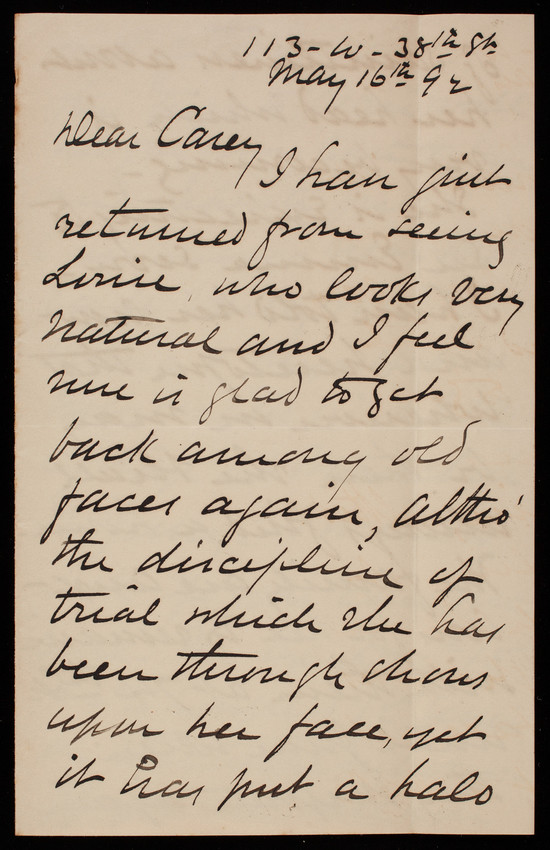 113-W-38th St
May 16th 92
Dear Casey
I have just
returned from seeing
Louie, who looks very
natural and I feel
sure is glad to get
back among old
faces again, altho'
the discipline of
trial which she has
been through shows
upon her face, yet
it has put a halo